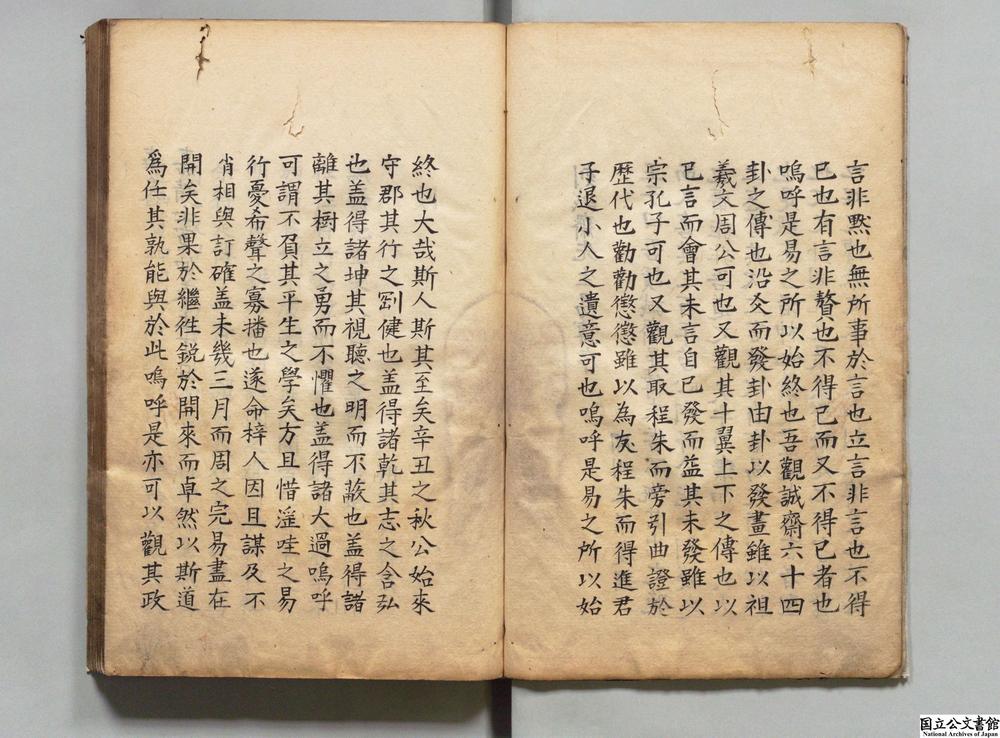 言非黙也無所事於言也立言非言也不得
已也有言非贅也不得已而又不得已者也
嗚呼是易之所以始終也吾觀誠齋六十四
卦之傳也沿爻而發卦由卦以發畫雖以祖
羲文周公可也又觀其十翼上下之傳也以
已言而會其未言自已發而益其未發雖以
宗孔子可也又觀其取程朱而旁引曲證於
歷代也勸勸懲懲雖以為友程朱而得進君
子退小人之遺意可也嗚呼是易之所以始
終也大哉斯人斯其至矣辛丑之秋公始來
守郡其行之剛健也盖得諸乾其志之含弘
也盖得諸坤其視聽之明而不蔽也盖得諸
離其樹立之勇而不懼也盖得諸大過嗚呼
可謂不負其平生之學矣方且惜淫哇之易
行憂希聲之寡播也遂命梓人因且謀及不
肖相與訂確盖未幾三月而周之完易盡在
開矣非果於繼徃鋭於開來而卓然以斯道
爲任其孰能與於此嗚呼是亦可以觀其政
国立公文書館
National Archives of Japan